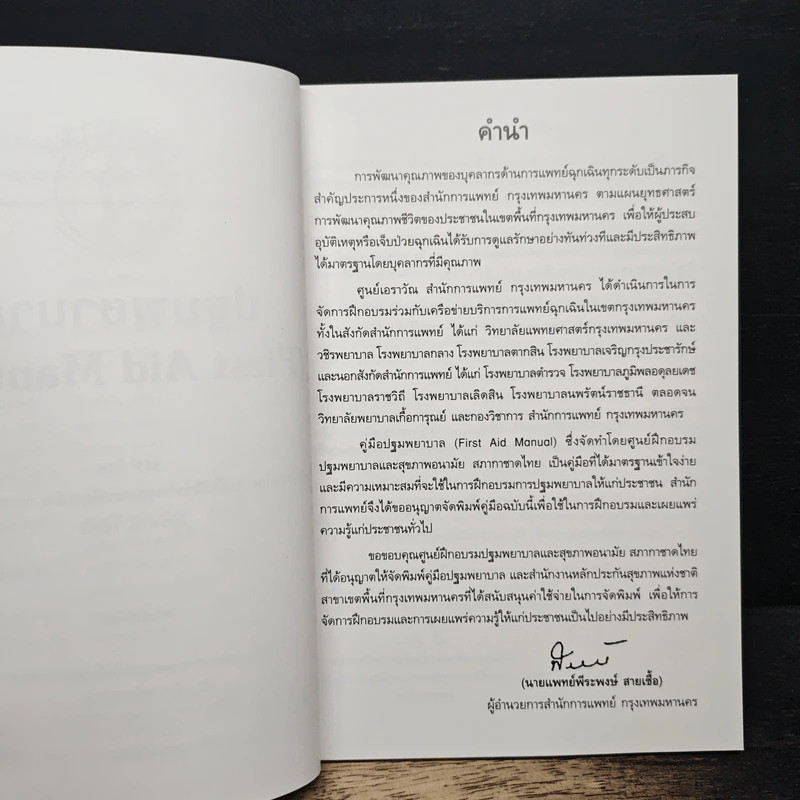 คำนำ
การพัฒนาคุณภาพของบุคลากรด้านการแพทย์ฉุกเฉินทุกระดับเป็นภารกิจ
สำคัญประการหนึ่งของสำนักการแพทย์ กรุงเทพมหานคร ตามแผนยุทธศาสตร์
การพัฒนาคุณภาพชีวิตของประชาชนในเขตพื้นที่กรุงเทพมหานคร เพื่อให้ผู้ประสบ
อุบัติเหตุหรือเจ็บป่วยฉุกเฉินได้รับการดูแลรักษาอย่างทันท่วงทีและมีประสิทธิภาพ
ได้มาตรฐานโดยบุคลากรที่มีคุณภาพ
ศูนย์เอราวัณ สำนักการแพทย์ กรุงเทพมหานคร ได้ดำเนินการในการ
จัดการฝึกอบรมร่วมกับเครือข่ายบริการการแพทย์ฉุกเฉินในเขตกรุงเทพมหานคร
ทั้งในสังกัดสำนักการแพทย์ ได้แก่ วิทยาลัยแพทยศาสตร์กรุงเทพมหานคร และ
วชิรพยาบาล โรงพยาบาลกลาง โรงพยาบาลตากสิน โรงพยาบาลเจริญกรุงประชารักษ์
และนอกสังกัดสำนักการแพทย์ ได้แก่ โรงพยาบาลตำรวจ โรงพยาบาลภูมิพลอดุลยเดช
โรงพยาบาลราชวิถี โรงพยาบาลเลิดสิน โรงพยาบาลนพรัตน์ราชธานี ตลอดจน
วิทยาลัยพยาบาลเกื้อการุณย์ และกองวิชาการ สำนักการแพทย์ กรุงเทพมหานคร
คู่มือปฐมพยาบาล (First Aid Manual) ซึ่งจัดทำโดยศูนย์ฝึกอบรม
ปฐมพยาบาลและสุขภาพอนามัย สภากาชาดไทย เป็นคู่มือที่ได้มาตรฐานเข้าใจง่าย
และมีความเหมาะสมที่จะใช้ในการฝึกอบรมการปฐมพยาบาลให้แก่ประชาชน สำนัก
การแพทย์จึงได้ขออนุญาตจัดพิมพ์คู่มือฉบับนี้เพื่อใช้ในการฝึกอบรมและเผยแพร่
ความรู้แก่ประชาชนทั่วไป
ขอขอบคุณศูนย์ฝึกอบรมปฐมพยาบาลและสุขภาพอนามัย สภากาชาดไทย
ที่ได้อนุญาตให้จัดพิมพ์คู่มือปฐมพยาบาล และสำนักงานหลักประกันสุขภาพแห่งชาติ
สาขาเขตพื้นที่กรุงเทพมหานครที่ได้สนับสนุนค่าใช้จ่ายในการจัดพิมพ์ เพื่อให้การ
จัดการฝึกอบรมและการเผยแพร่ความรู้ให้แก่ประชาชนเป็นไปอย่างมีประสิทธิภาพ
(นายแพทย์พีระพงษ์ สายเชื้อ)
ผู้อำนวยการสำนักการแพทย์ กรุงเทพมหานคร